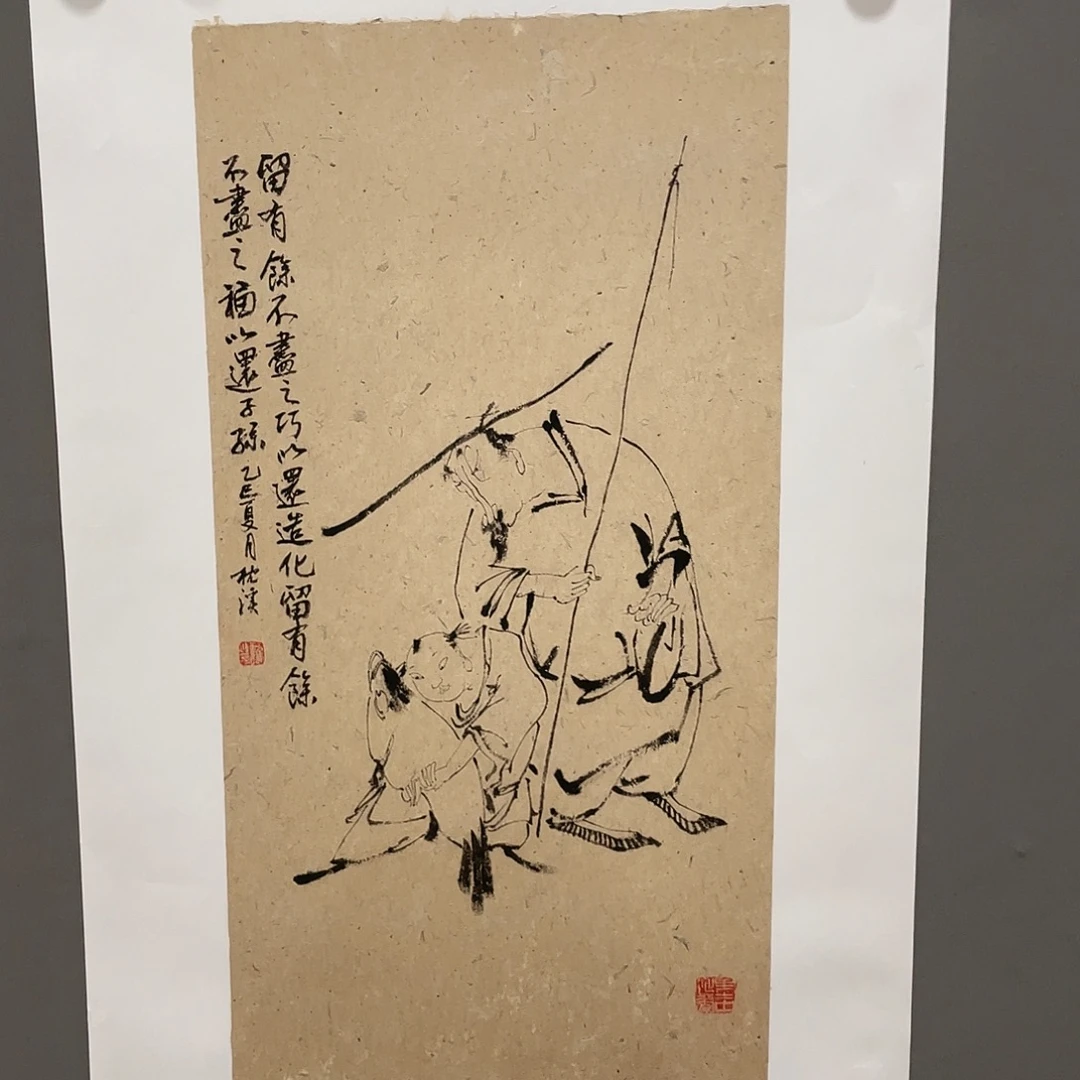 留有餘不盡之巧以還造化留有餘
不盡之福以還子孫乙巳夏月枕溪